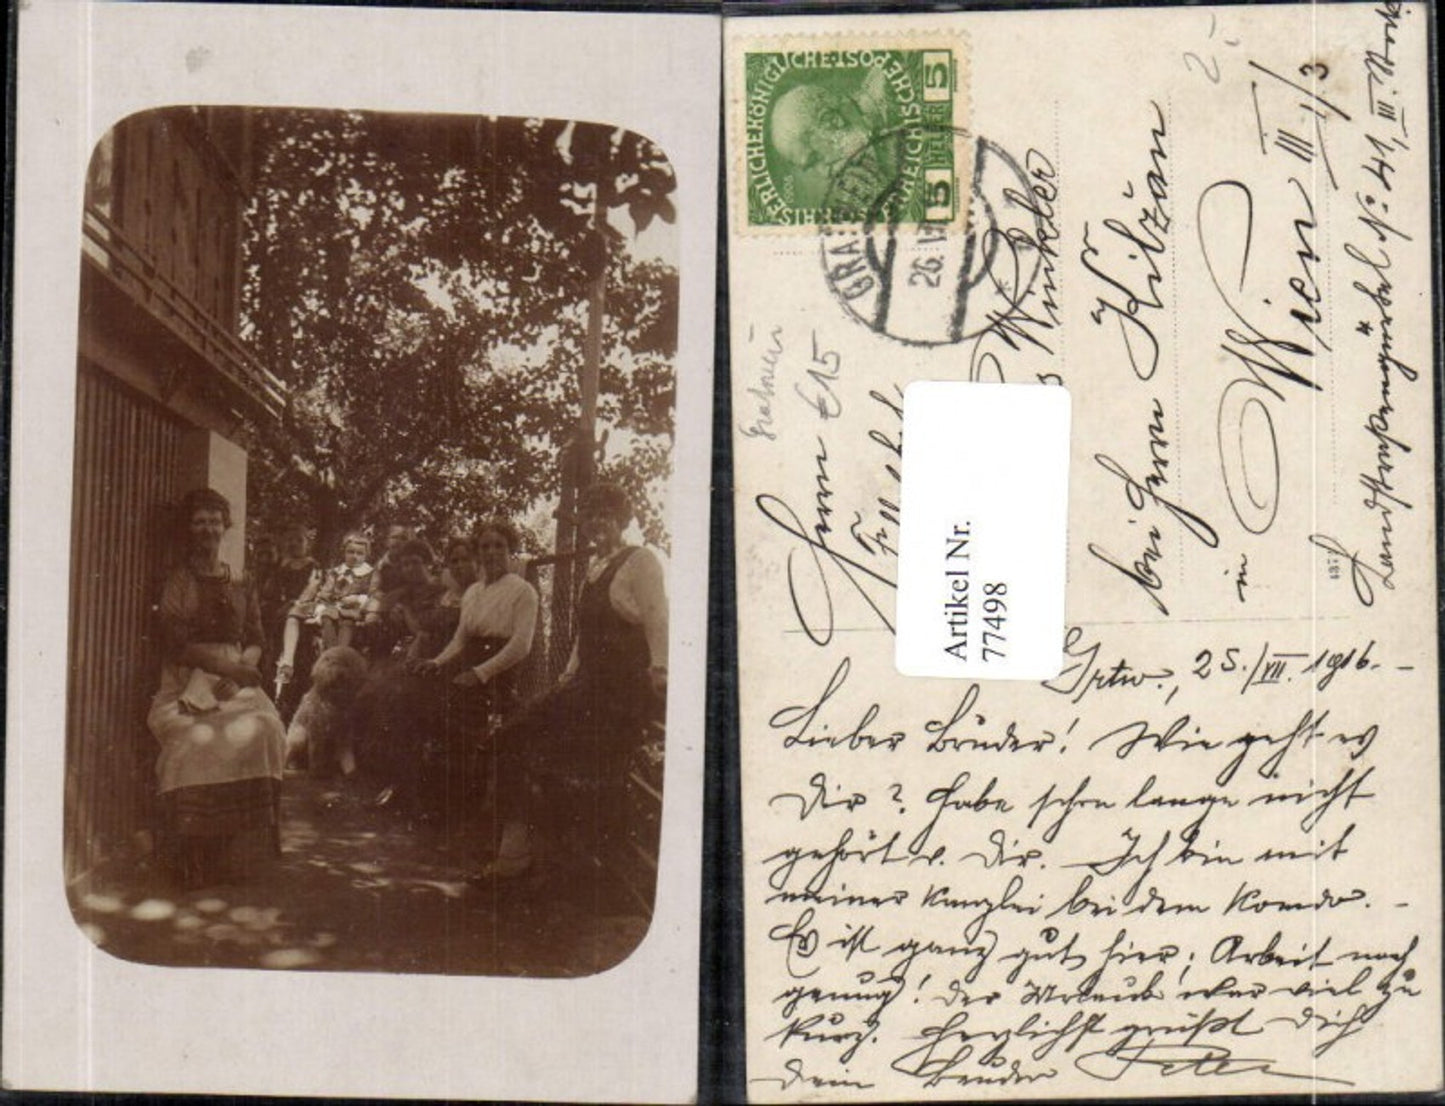 KAISERLICHE KÖNIGLICHE POST
ÖSTERREICHISCHE
5 HELLER 5
1908
26. V
2.-
€15
Herrn
Winkler
bei Herrn Kilžan
in Wien III./3
Landstrassengürtel No: 41, III. Stock
Artikel Nr.
77498
25./VII. 1916. -
Lieber Bruder! Wie geht es
Dir? Habe schon lange nicht
gehört v. Dir. Ich bin mit
meiner Kanzlei bei dem Komdo. -
Es ist ganz gut hier; Arbeit noch
genug! Der Urlaub war viel zu
kurz. Herzlichst grüßt Dich
Dein Bruder Peter